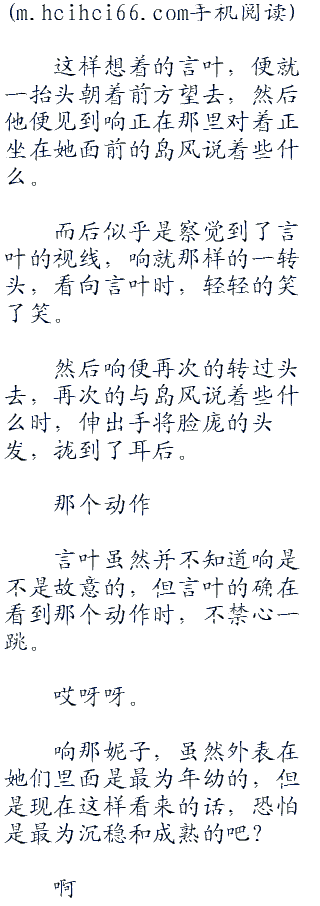 (m.hcihci66.com手机阅读)
这样想着的言叶，便就
一抬头朝着前方望去，然后
他便见到响正在那里对着正
坐在她面前的岛风说着些什
么。
而后似乎是察觉到了言
叶的视线，响就那样的一转
头，看向言叶时，轻轻的笑
了笑。
然后响便再次的转过头
去，再次的与岛风说着些什
么时，伸出手将脸庞的头
发，拢到了耳后。
那个动作
言叶虽然并不知道响是
不是故意的，但言叶的确在
看到那个动作时，不禁心一
跳。
哎呀呀。
响那妮子，虽然外表在
她们里面是最为年幼的，但
是现在这样看来的话，恐怕
是最为沉稳和成熟的吧？
啊